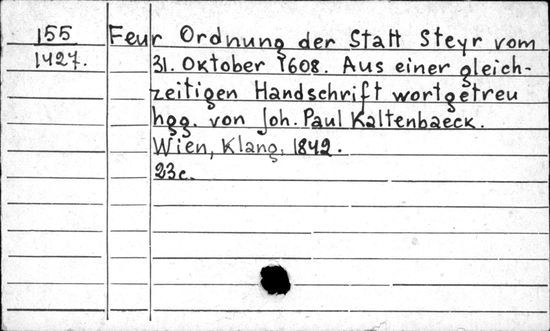 155 Feur Ordnung der Statt Steyr vom
1427. 31. Oktober 1608. Aus einer gleich-
zeitigen Handschrift wortgetreu
hgg. von Joh. Paul Kaltenbaeck.
Wien, Klang, 1842.
23c.